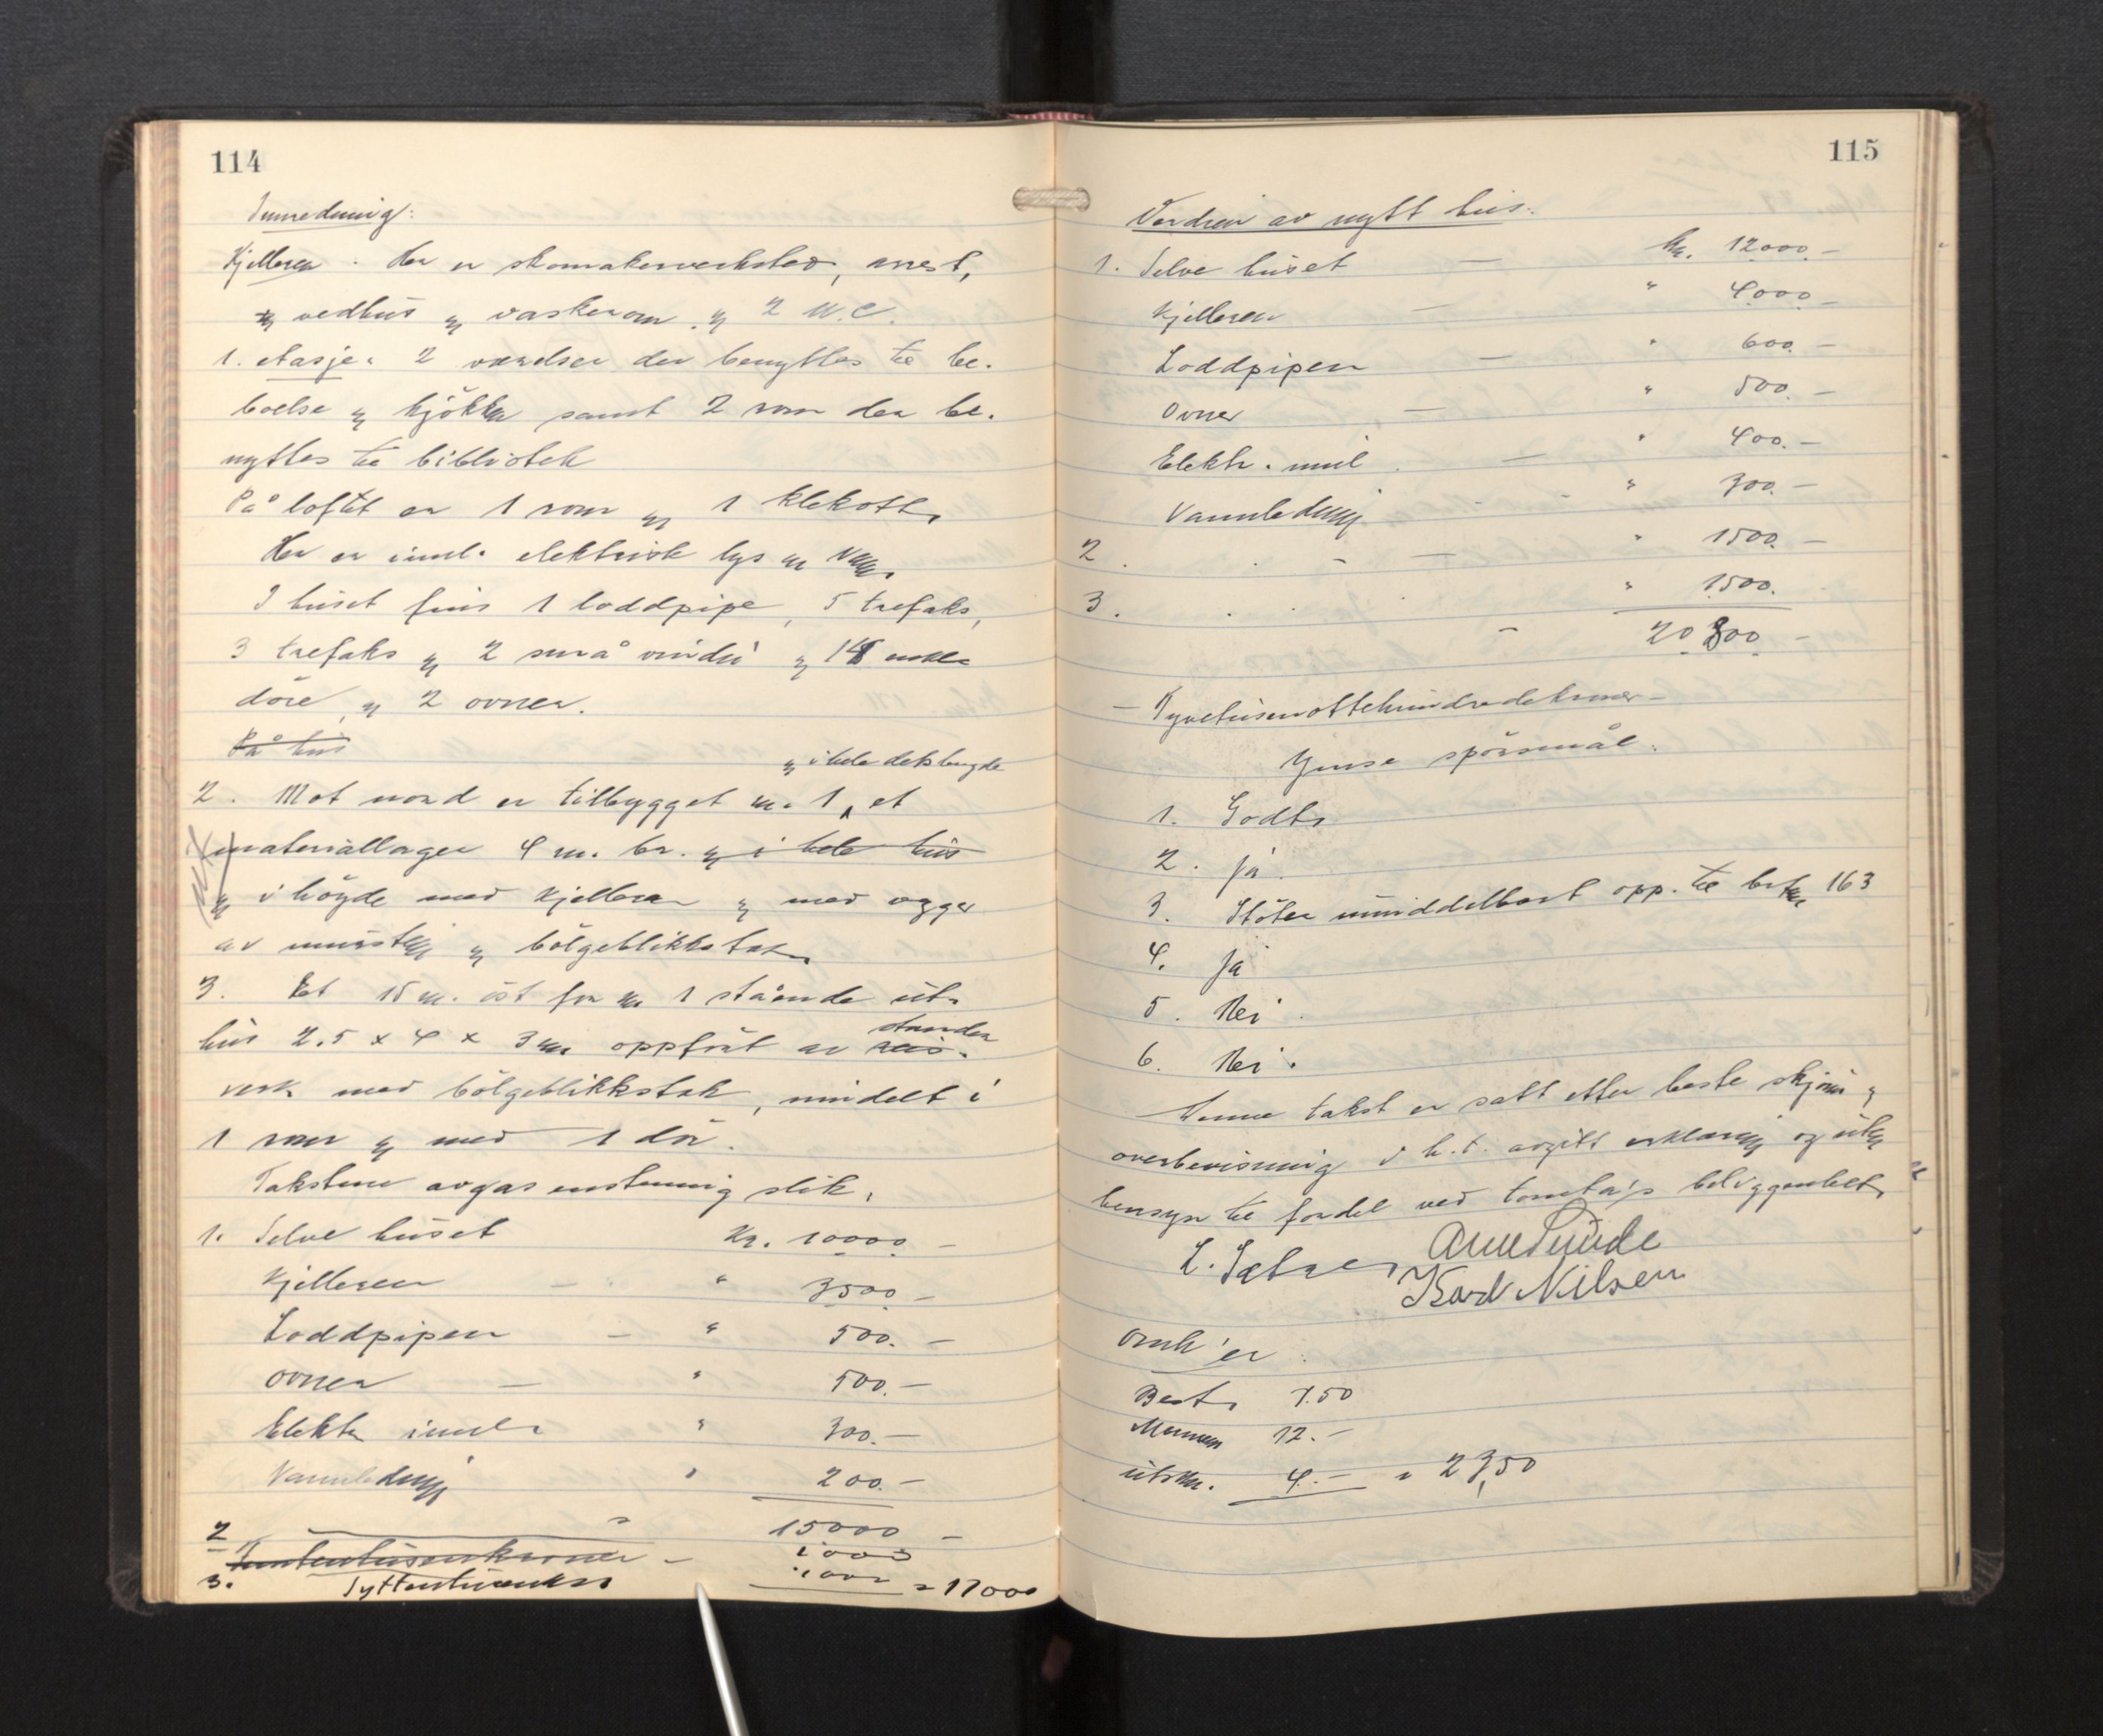 114
Innredning:
Kjelleren. Her er skomakerverksted, arrest,
og vedhus og vaskerom og 2 W.C.
1. etasje: 2 værelser der benyttes til be-
boelse og kjökken samt 2 rom der be-
nyttes til bibliotek
På loftet er 1 rom og 1 klekott.
Her er innl. elektrisk lys og vann.
I huset fins 1 loddpipe, 5 trefaks,
3 trefaks og 2 små vindu og 14 enkle
döre, og 2 ovner.
På hus
og i hele dets lengde
2. Mot nord er tilbygget nr. 1, et
materiallager 4 m. br. og i hele hus
og i höyde med kjelleren og med vegger
av murstein og bölgeblikkstak.
3. Et 15 m. öst for nr 1 stående ut-
hus 2.5 x 4 x 3 m oppfört av stender
reis-
verk med bölgeblikkstak, inndelt i
1 rom og med 1 dör.
Takstene avgas enstemmig slik.
1. Selve huset Kr. 10000 -
Kjelleren - " 3500 -
Loddpipen - " 500. -
Ovner - " 500. -
Elektr innl. " 300. -
Vannledning " 200. -
2 15000 -
Femtentusenkroner - 1000
3. Syttentusenkr 1000 = 17000
115
Verdien av nytt hus.
1. Selve huset - kr. 12000. -
Kjelleren - " 4000 -
Loddpipen - " 600. -
Ovner - " 500. -
Elektr. innl. - " 400. -
Vannledning - " 300. -
2. - " 1500. -
3. " 1500.
- 20800 -
- Tyvetusenottehundredekroner -
Ymse spörsmål.
1. Godt.
2. ja.
3. Stöter umiddelbart opp. til br. nr 163
4. ja
5. Nei.
6. Nei.
Denne takst er satt etter beste skjönn og
overbevisning i h.t. avgitt erklæring og uten
hensyn til fordel ved tomta's beliggenhet.
L. Sætre Arne Sunde
Karl Nilsen
Omk'er
Best. 7.50
Mennene 12. -
Utskr. 4. - = 23,50